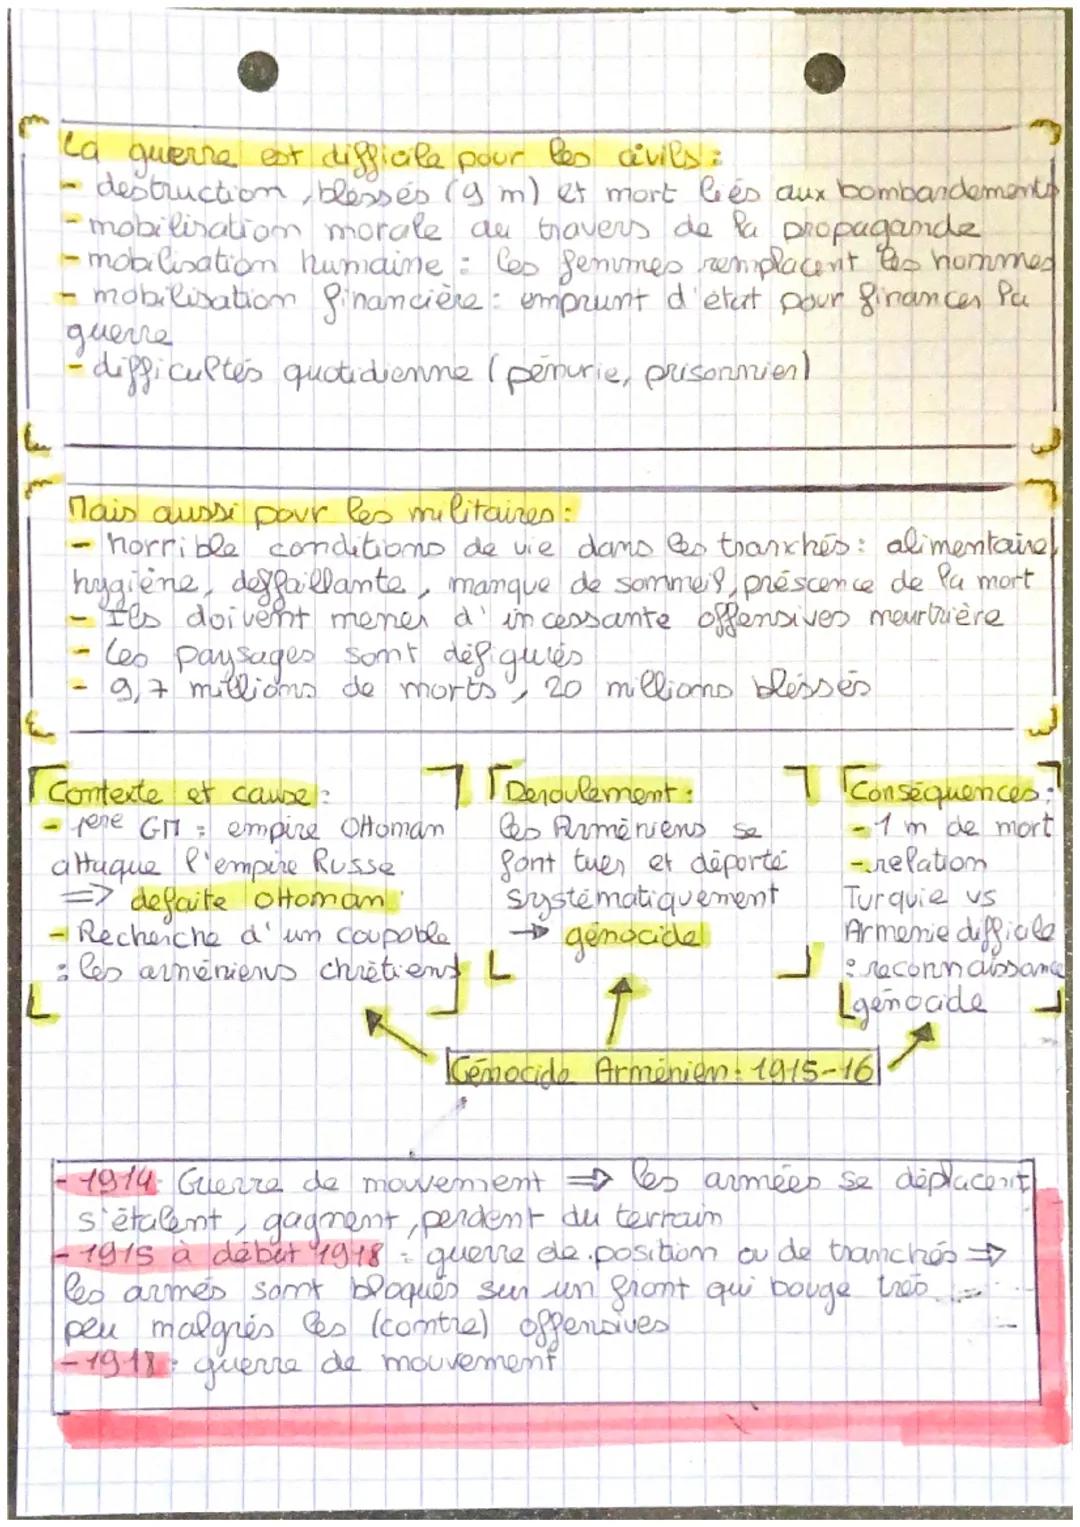 La guerre est difficile pour les civils :
- destruction, blessés (9 m) et mort liés aux bombardements
- mobilisation morale au travers de la propagande
- mobilisation humaine : les femmes remplacent les hommes
- mobilisation financière : emprunt d'état pour financer la
guerre
- difficultés quotidienne (pénurie, prisonnier)
Mais aussi pour les militaires :
- horrible conditions de vie dans les tranchés : alimentaire,
hygiène, deffaillante, manque de sommeil, préscence de la mort
- Ils doivent mener d'incessante offensives meurtrière
- Les paysages sont défigurés
- 9,7 millions de morts, 20 millions bléssés
Contexte et cause :
- 1ere GM : empire Ottoman
attaque l'empire Russe
=> defaite Ottoman
- Recherche d'un coupable
: les arméniens chrétiens
Deroulement :
les Arméniens se
font tuer et déporté
systématiquement
→ génocide
Conséquences :
- 1 m de mort
- relation
Turquie vs
Armenie difficile
: reconnaissance
génocide
Génocide Arménien : 1915-16
- 1914 : Guerre de mouvement => les armées se déplacent,
s'étalent, gagnent, perdent du terrain
- 1915 à début 1918 : guerre de position ou de tranchés =>
les armés sont bloqués sur un front qui bouge très
peu malgrés les (contre) offensives
- 1918 : guerre de mouvement